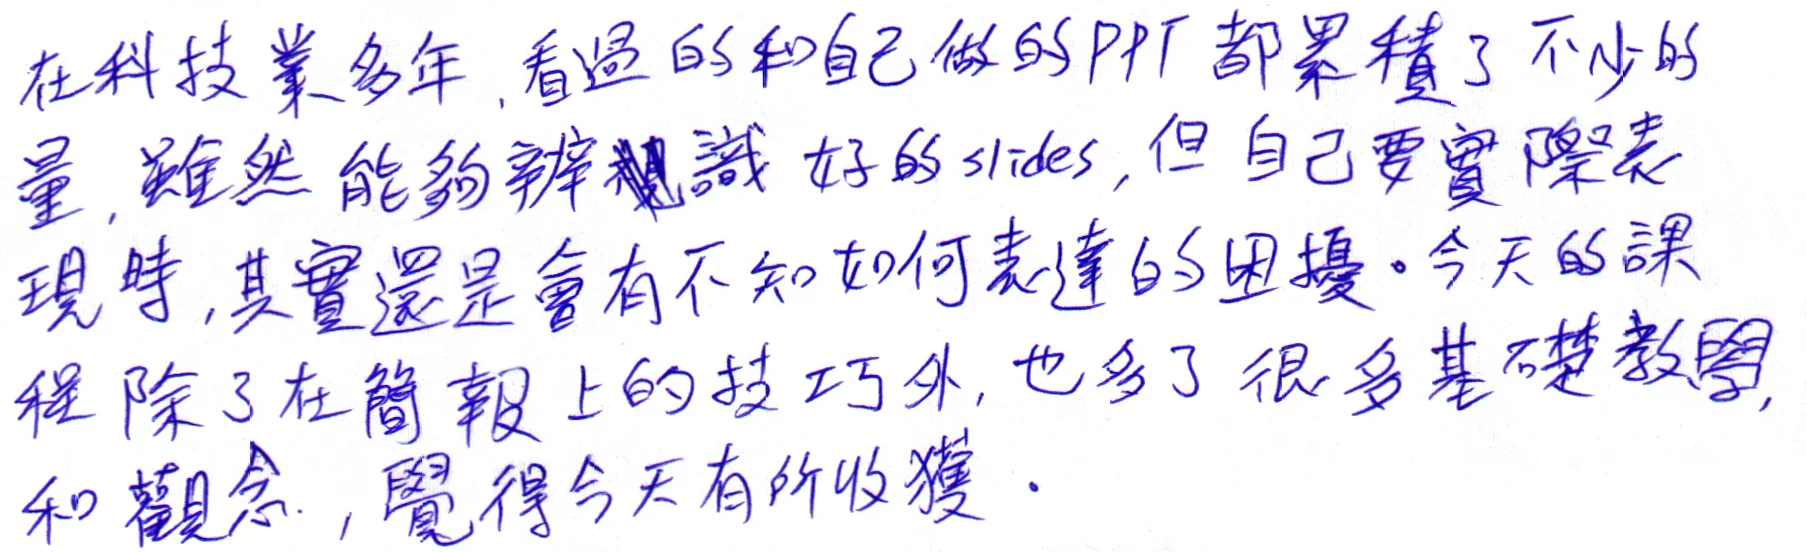 在科技業多年,看過的和自己做的PPT都累積了不少的
量,雖然能夠辨識好的slides,但自己要實際表
現時,其實還是會有不知如何表達的困擾。今天的課
程除了在簡報上的技巧外,也多了很多基礎教學,
和觀念,覺得今天有所收獲.